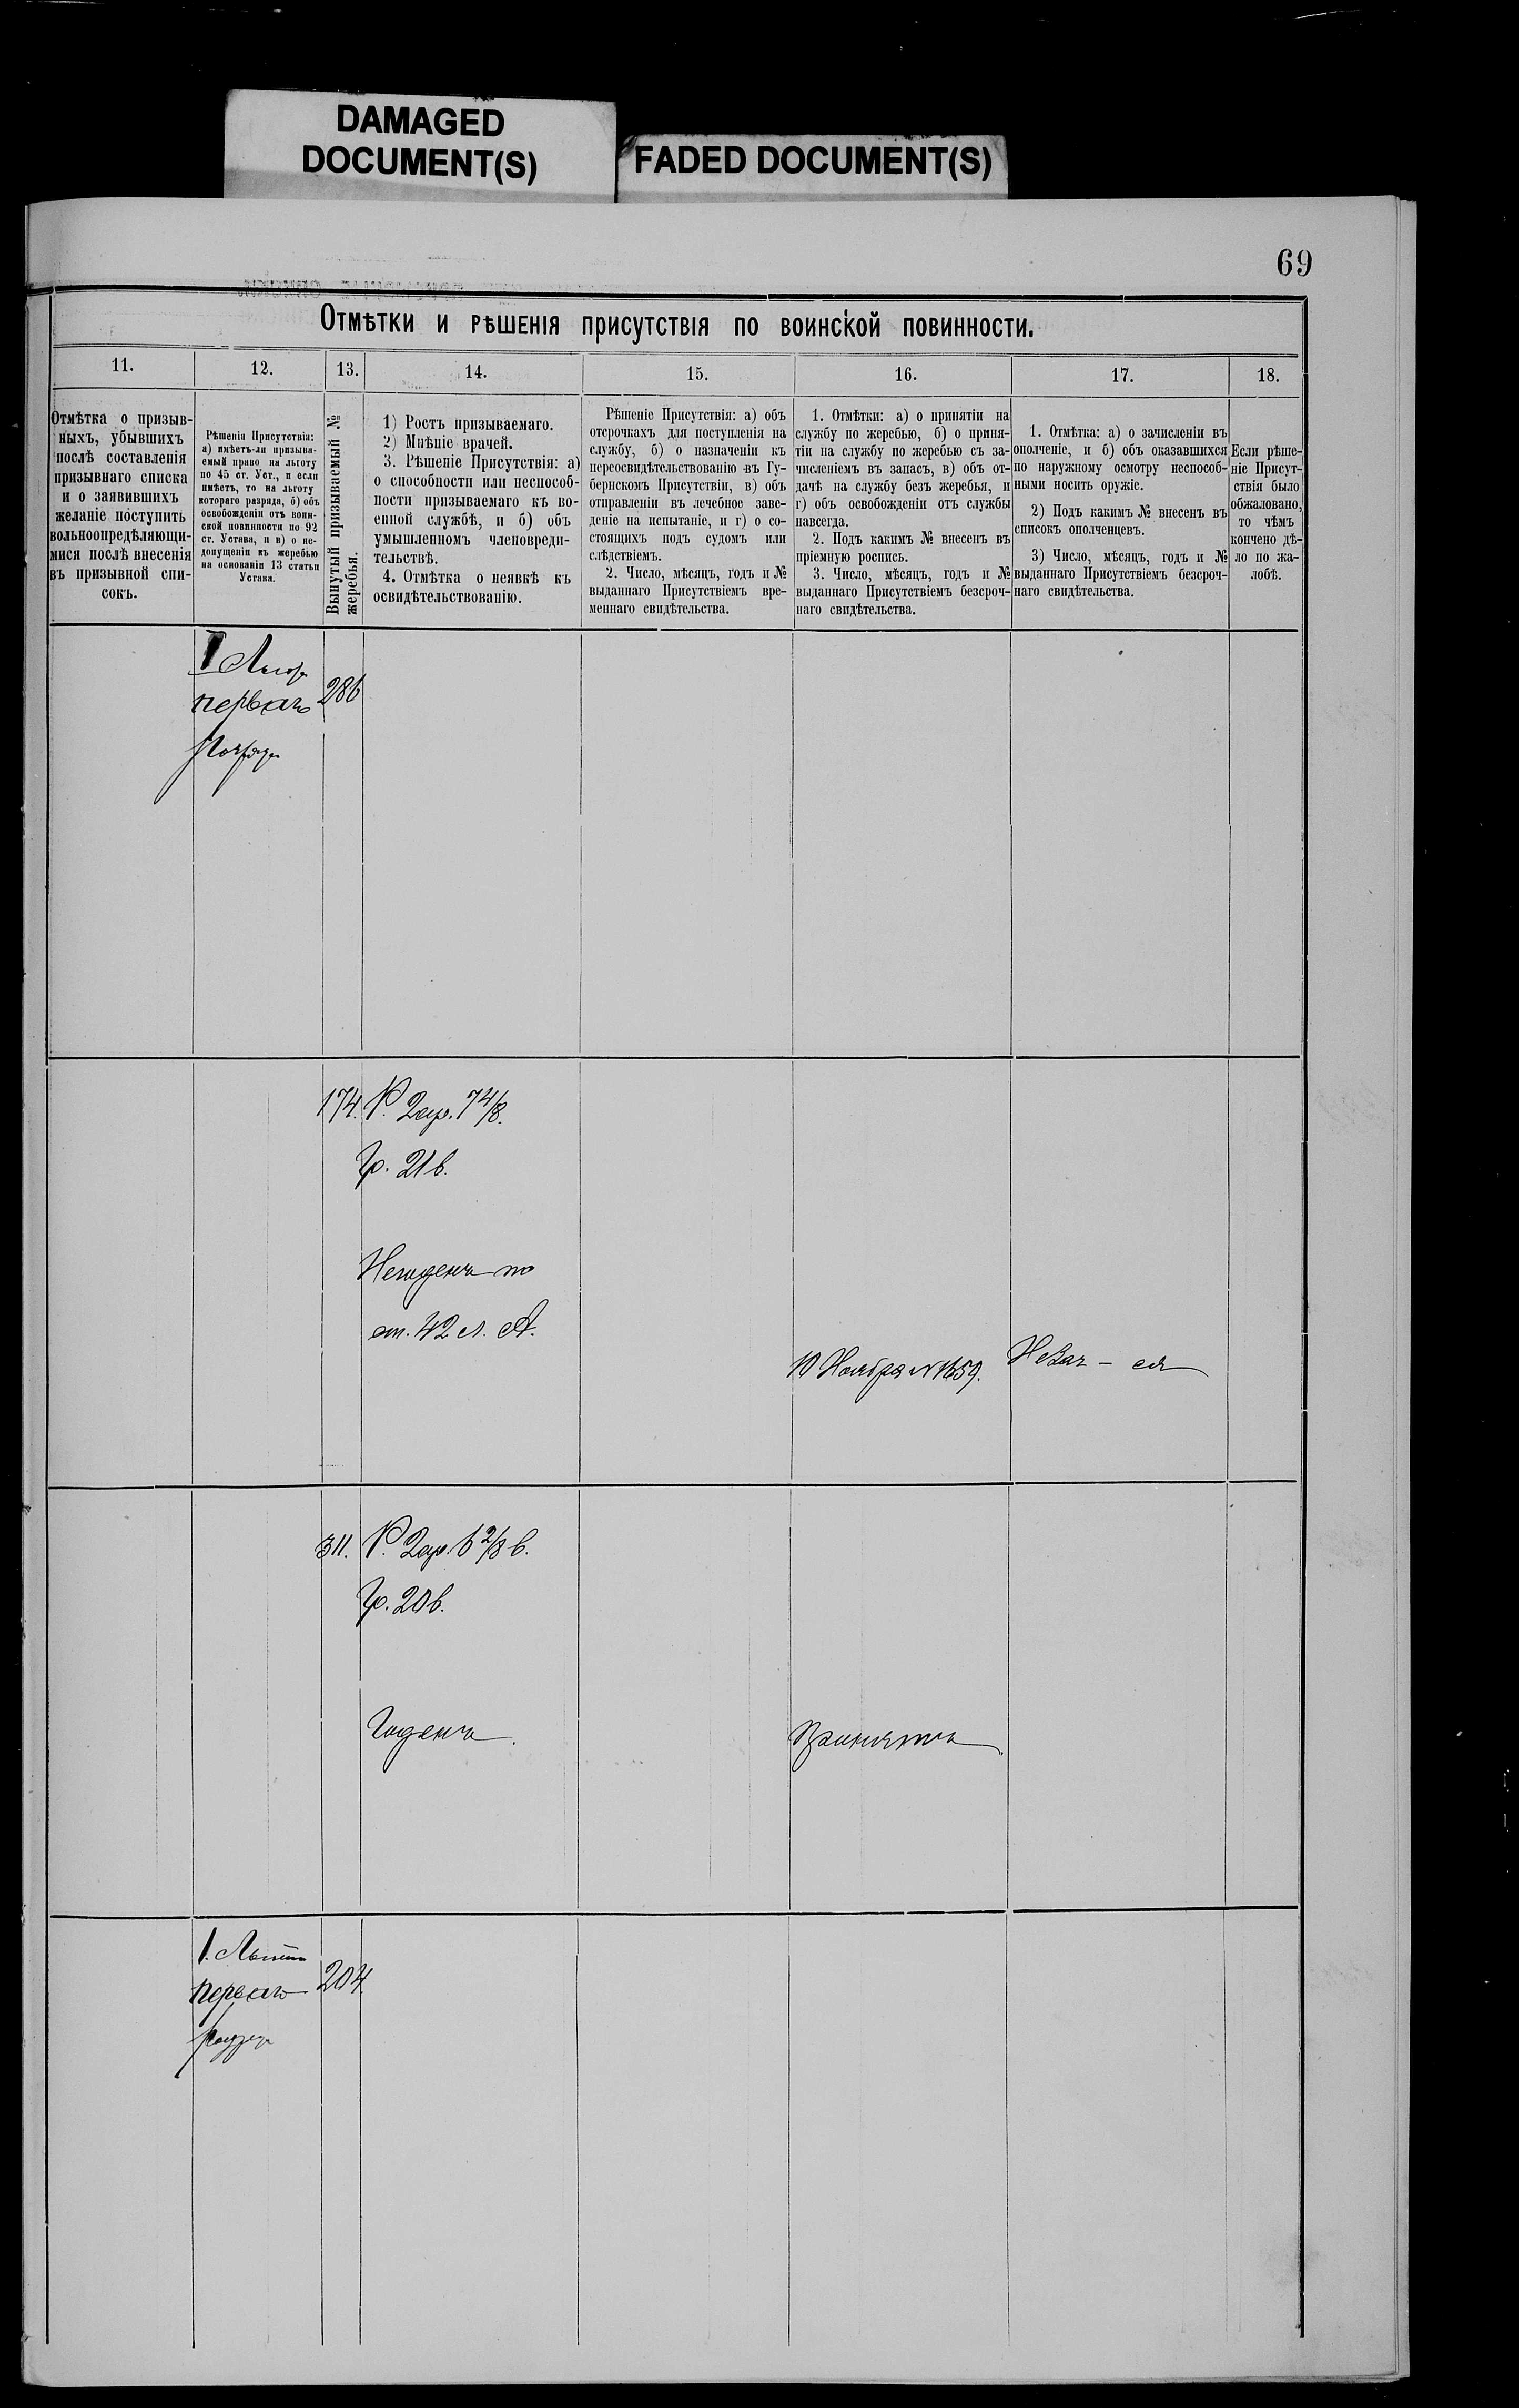 DAMAGED
DOCUMENT(S)
FADED DOCUMENT(S)
69
Отмѣтки и рѣшенія присутствія по воинской повинности.
11.
12.
13.
14.
15.
16.
17.
18.
Отмѣтка о призыв-
ныхъ, убывшихъ
послѣ составленія
призывнаго списка
и о заявившихъ
желаніе поступить
вольноопредѣляющи-
мися послѣ внесенія
въ призывной спи-
сокъ.
Рѣшенія Присутствія:
а) имѣетъ-ли призыва-
емый право на льготу
по 45 ст. Уст., и если
имѣетъ, то на льготу
котораго разряда, б) объ
освобожденіи отъ воин-
ской повинности по 92
ст. Устава, и в) о не-
допущеніи къ жеребью
на основаніи 13 статьи
Устава.
Вынутый призываемый №
жеребья.
1) Ростъ призываемаго.
2) Мнѣніе врачей.
3. Рѣшеніе Присутствія: а)
о способности или неспособ-
ности призываемаго къ во-
енной службѣ, и б) объ
умышленномъ членовреди-
тельствѣ.
4. Отмѣтка о неявкѣ къ
освидѣтельствованію.
Рѣшеніе Присутствія: а) объ
отсрочкахъ для поступленія на
службу, б) о назначеніи къ
переосвидѣтельствованію въ Гу-
бернскомъ Присутствіи, в) объ
отправленіи въ лечебное заве-
деніе на испытаніе, и г) о со-
стоящихъ подъ судомъ или
слѣдствіемъ.
2. Число, мѣсяцъ, годъ и №
выданнаго Присутствіемъ вре-
меннаго свидѣтельства.
1. Отмѣтки: а) о принятіи на
службу по жеребью, б) о приня-
тіи на службу по жеребью съ за-
численіемъ въ запасъ, в) объ от-
дачѣ на службу безъ жеребья, и
г) объ освобожденіи отъ службы
навсегда.
2. Подъ какимъ № внесенъ въ
пріемную роспись.
3. Число, мѣсяцъ, годъ и №
выданнаго Присутствіемъ безсроч-
наго свидѣтельства.
1. Отмѣтка: а) о зачисленіи въ
ополченіе, и б) объ оказавшихся
по наружному осмотру неспособ-
ными носить оружіе.
2) Подъ какимъ № внесенъ въ
списокъ ополченцевъ.
3) Число, мѣсяцъ, годъ и №
выданнаго Присутствіемъ безсроч-
наго свидѣтельства.
Если рѣше-
ніе Присут-
ствія было
обжаловано,
то чѣмъ
кончено дѣ-
ло по жа-
лобѣ.
I
перваго
286
разряда
174. Р. 2 ар. 7 4/8.
Гр. 21 в.
Негоденъ по
ст. 42 л. А.
10 Ноября №1659.
311. Р. 2 ар. 6 2/8 в.
Гр. 20 в.
Годенъ.
Принятъ.
1. Льгота
перваго
204.
разряда